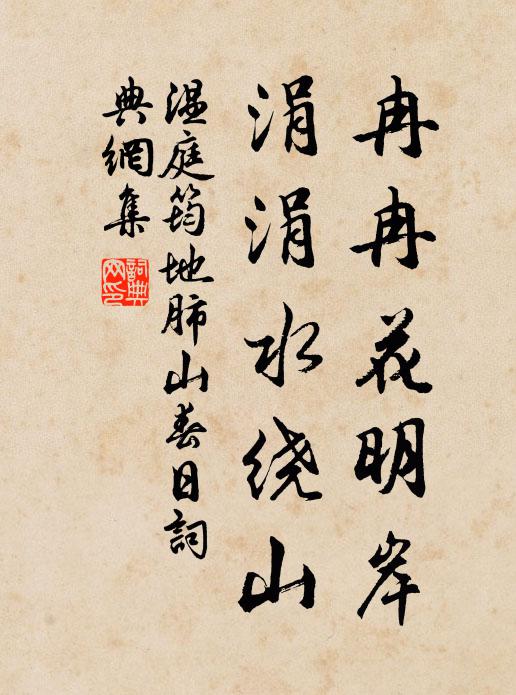 冉冉花明岸
涓涓水绕山
温庭筠地肺山春日詞
典網集
詞典
网印